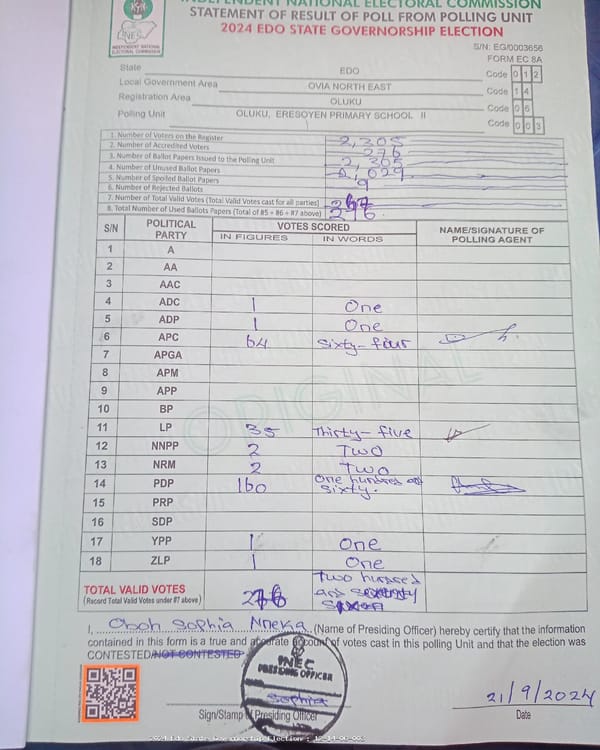 INDEPENDENT NATIONAL ELECTORAL COMMISSION
STATEMENT OF RESULT OF POLL FROM POLLING UNIT
2024 EDO STATE GOVERNORSHIP ELECTION
INEC
INDEPENDENT NATIONAL
ELECTORAL COMMISSION
S/N: EG/0003656
FORM EC 8A
State EDO Code 0 1 2
Local Government Area OVIA NORTH EAST Code 1 4
Registration Area OLUKU Code 0 6
Polling Unit OLUKU, ERESOYEN PRIMARY SCHOOL II Code 0 0 3
1. Number of Voters on the Register 2,305
2. Number of Accredited Voters 276
3. Number of Ballot Papers Issued to the Polling Unit 2,305
4. Number of Unused Ballot Papers 2,029
5. Number of Spoiled Ballot Papers
6. Number of Rejected Ballots 9
7. Number of Total Valid Votes (Total Valid Votes cast for all parties) 267
8. Total Number of Used Ballots Papers (Total of #5 + #6 + #7 above) 276
S/N POLITICAL PARTY VOTES SCORED NAME/SIGNATURE OF POLLING AGENT
IN FIGURES IN WORDS
1 A
2 AA
3 AAC
4 ADC 1 One
5 ADP 1 One
6 APC 64 Sixty-four
7 APGA
8 APM
9 APP
10 BP
11 LP 35 Thirty-five
12 NNPP 2 Two
13 NRM 2 Two
14 PDP 160 One hundred and sixty.
15 PRP
16 SDP
17 YPP 1 One
18 ZLP 1 One
ORIGINAL
TOTAL VALID VOTES Two hundred and
(Record Total Valid Votes under #7 above)
I, Oboh Sophia Nneka (Name of Presiding Officer) hereby certify that the information
contained in this form is a true and accurate account of votes cast in this polling Unit and that the election was
CONTESTED/NOT CONTESTED
INEC
PRESIDING OFFICER
Sophia
21/9/2024
Sign/Stamp of Presiding Officer Date